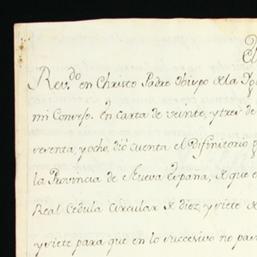 El
Rev.do en Christo Padre Obispo de la Yg
mi Consejo. En carta de veinte, y tres de
sesenta, y ocho, dió cuenta el Difinitorio p
la Provincia de Nueva España, de que e
Real Cedula Circular de diez, y siete d
y siete para que en lo succesivo no pa